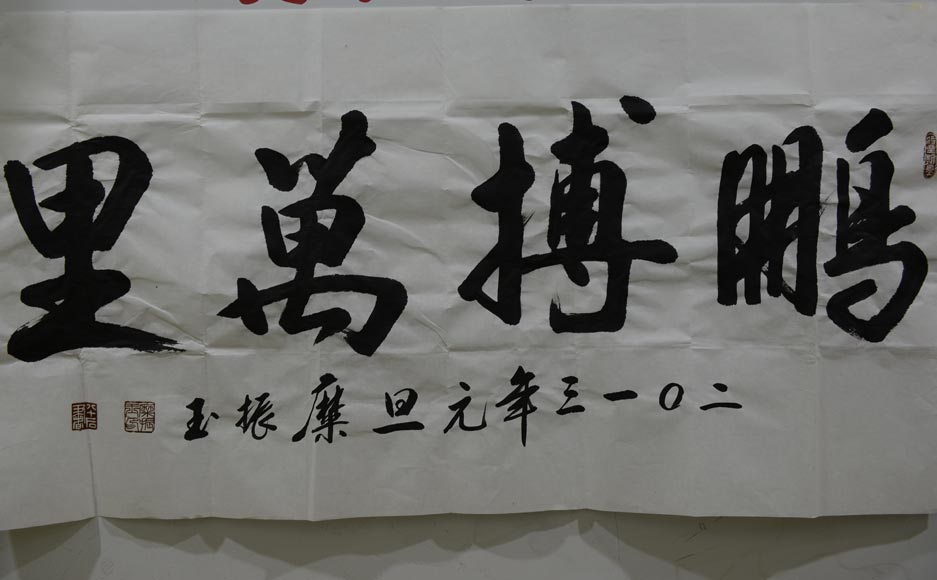 鵬搏萬里
二〇一三年元旦糜振玉